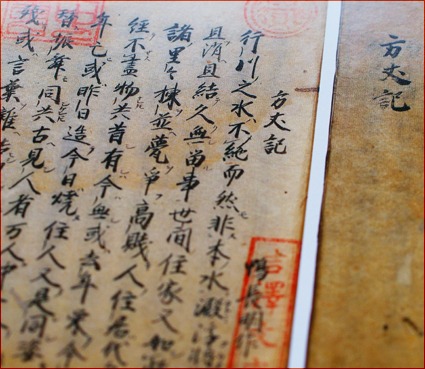 方丈記
方丈記
鴨長明作
行川之水不絶而然非本水澱浮
且消且結久無留事世間住家又如
諸里々棟並甍爭高賤人住居代
経不盡物共有今無或去年栄今
年亡或昨日造今日焼住人又是同
振舞同共古見人者万人中
或言棄